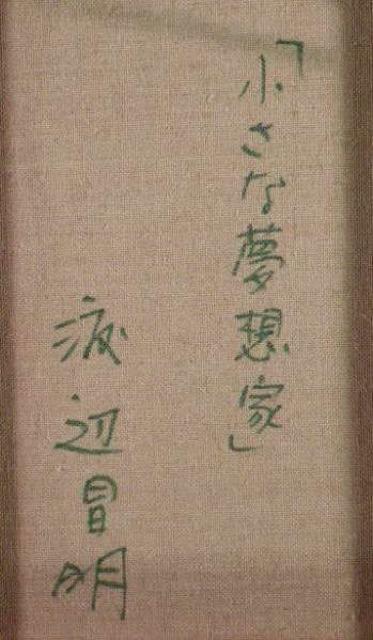 「小さな夢想家」
渡辺冒明